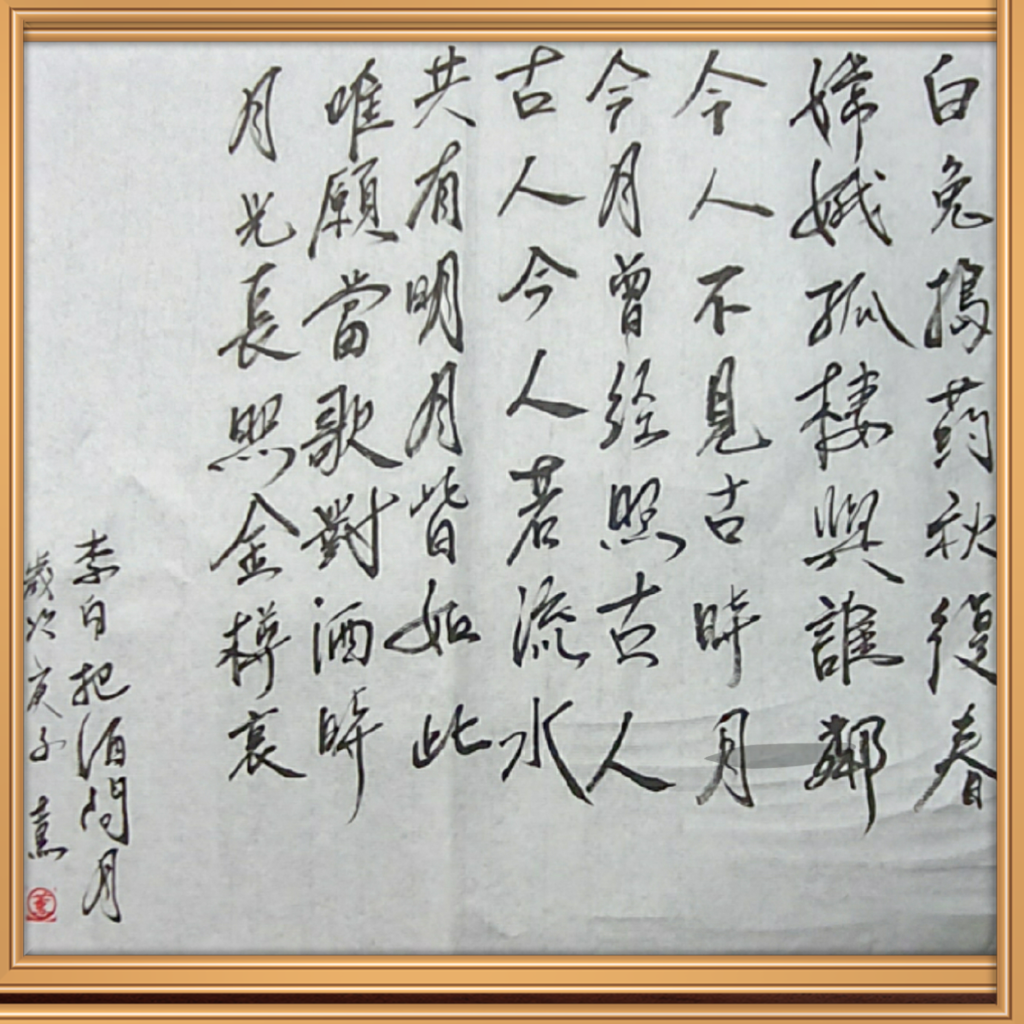 白兔搗药秋復春
嫦娥孤棲與誰鄰
今人不見古時月
今月曾经照古人
古人今人若流水
共有明月皆如此
唯願當歌對酒時
月光長照金樽裏
李白把酒問月
歲次庚子 熹